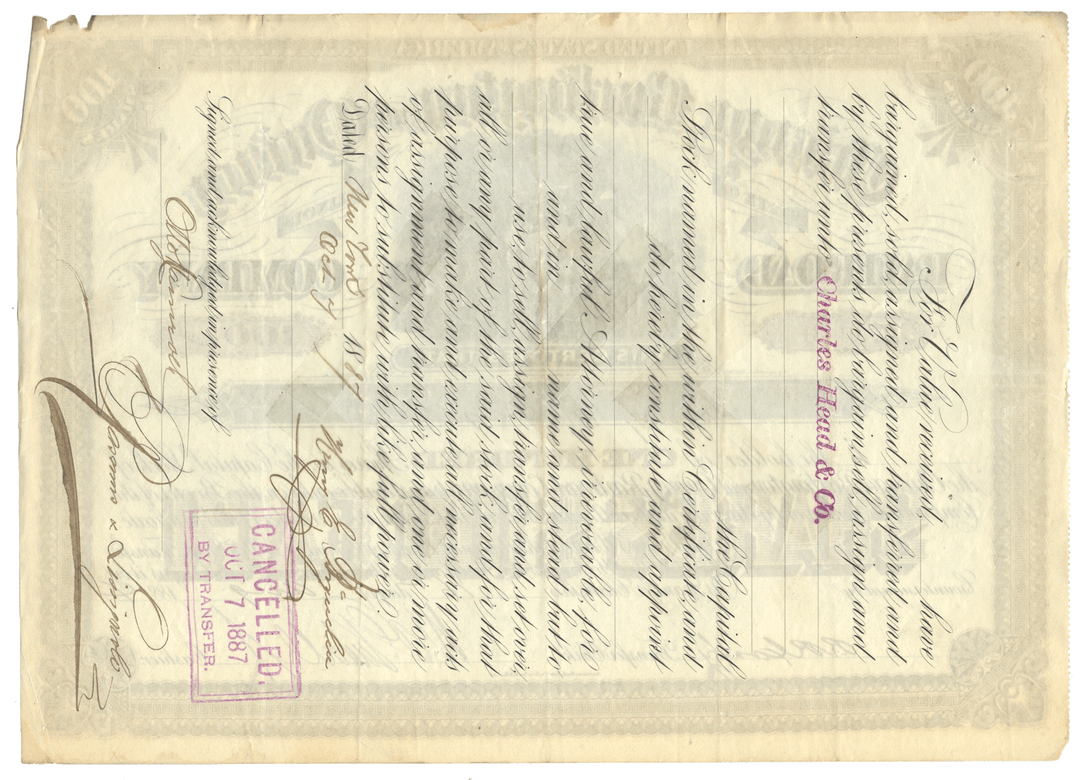 For Value received, have
bargained, sold, assigned and transferred and
by these presents do bargain, sell, assign and
transfer unto Charles Head & Co.
the Capital
Stock named in the within Certificate, and
do hereby constitute and appoint
true and lawful Attorney, irrevocable, for
and in name and stead but to
use, to sell, assign, transfer and set over,
all or any part of the said stock, and for that
purpose to make and execute all necessary acts
of assignment and transfer, and one or more
persons to substitute with like full power.
Dated New York
Oct 7 1887
Signed and acknowledged in presence of
CANCELLED.
OCT 7 1887
BY TRANSFER.